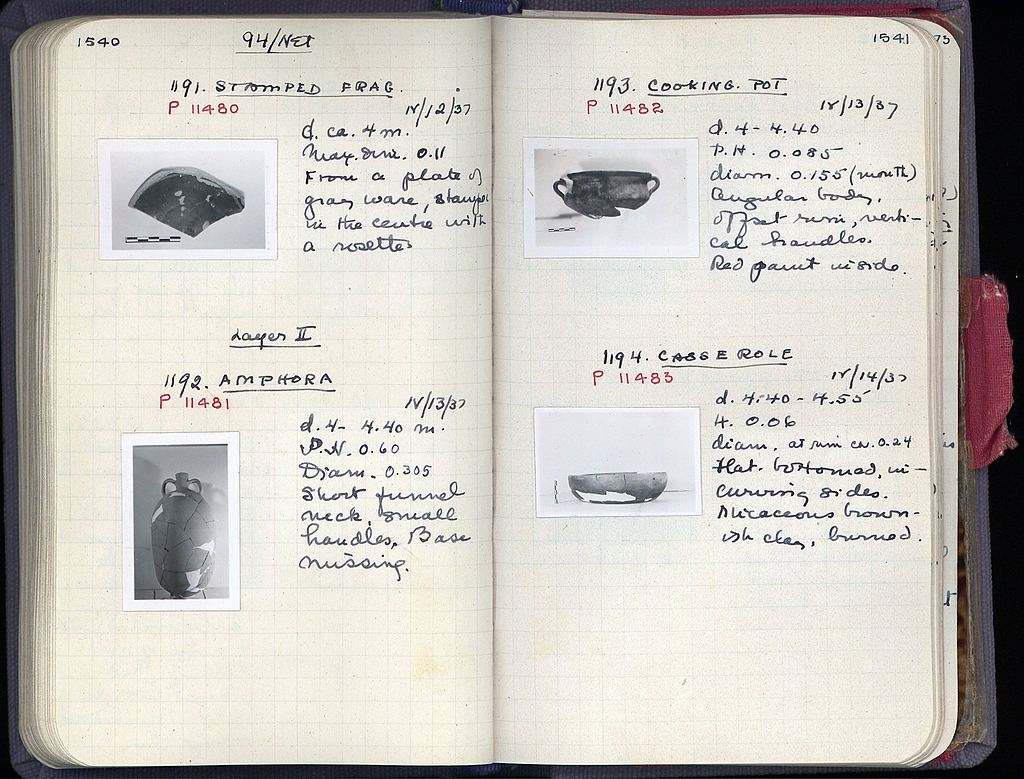 1540
94/NEΣ
1191. STAMPED FRAG.
P 11480
IV/12/37
d. ca. 4 m.
Max. dim. 0.11
From a plate of
gray ware, stamped
in the centre with
a rosette.
Layer II
1192. AMPHORA
P 11481
IV/13/37
d. 4- 4.40 m.
P.H. 0.60
Diam. 0.305
Short funnel
neck, small
handles, Base
missing.
1541
73
1193. COOKING. POT
P 11482
IV/13/37
d. 4- 4.40
P.H. 0.085
diam. 0.155 (mouth)
Angular body,
offset rim, verti-
cal handles.
Red paint inside.
1194. CASSEROLE
P 11483
IV/14/37
d. 4.40 - 4.55
H. 0.06
diam. at rim ca. 0.24
Flat-bottomed, in-
curving sides.
Micaceous brown-
ish clay, burned.